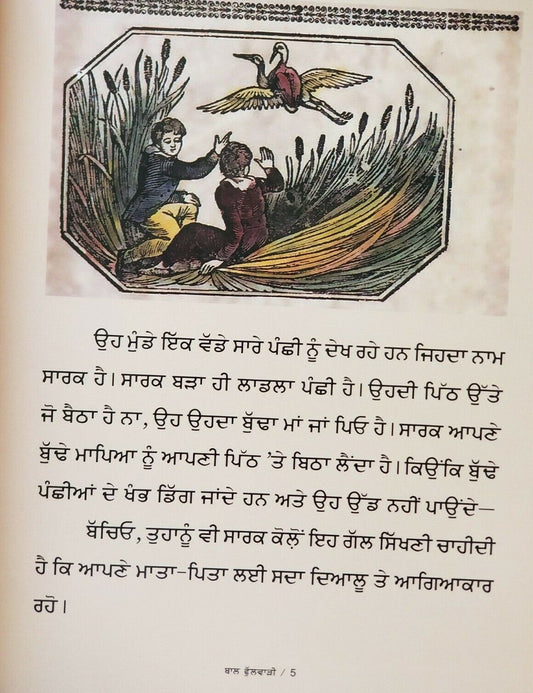 ਉਹ ਮੁੰਡੇ ਇੱਕ ਵੱਡੇ ਸਾਰੇ ਪੰਛੀ ਨੂੰ ਦੇਖ ਰਹੇ ਹਨ ਜਿਹਦਾ ਨਾਮ
ਸਾਰਕ ਹੈ। ਸਾਰਕ ਬੜਾ ਹੀ ਲਾਡਲਾ ਪੰਛੀ ਹੈ। ਉਹਦੀ ਪਿੱਠ ਉੱਤੇ
ਜੋ ਬੈਠਾ ਹੈ ਨਾ, ਉਹ ਉਹਦਾ ਬੁੱਢਾ ਮਾਂ ਜਾਂ ਪਿਓ ਹੈ। ਸਾਰਕ ਆਪਣੇ
ਬੁੱਢੇ ਮਾਪਿਆ ਨੂੰ ਆਪਣੀ ਪਿੱਠ ’ਤੇ ਬਿਠਾ ਲੈਂਦਾ ਹੈ। ਕਿਉਂਕਿ ਬੁੱਢੇ
ਪੰਛੀਆਂ ਦੇ ਖੰਭ ਡਿੱਗ ਜਾਂਦੇ ਹਨ ਅਤੇ ਉਹ ਉੱਡ ਨਹੀਂ ਪਾਉਂਦੇ—
ਬੱਚਿਓ, ਤੁਹਾਨੂੰ ਵੀ ਸਾਰਕ ਕੋਲੋਂ ਇਹ ਗੱਲ ਸਿੱਖਣੀ ਚਾਹੀਦੀ
ਹੈ ਕਿ ਆਪਣੇ ਮਾਤਾ-ਪਿਤਾ ਲਈ ਸਦਾ ਦਿਆਲੂ ਤੇ ਆਗਿਆਕਾਰ
ਰਹੋ।
ਬਾਲ ਫੁੱਲਵਾੜੀ / 5